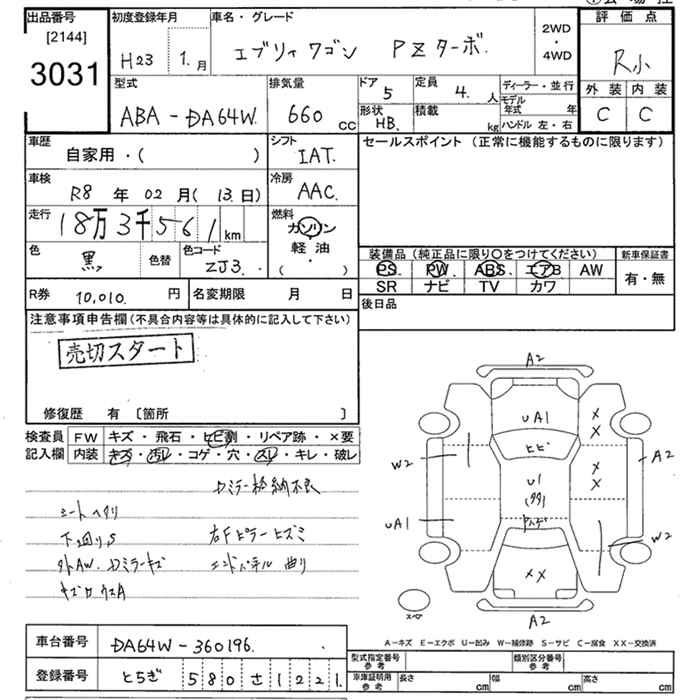 出品番号
[2144]
3031
初度登録年月
H23 1.月
車名・グレード
エブリィワゴン PZターボ.
2WD
・
4WD
評価点
R小
外装 内装
C C
型式
ABA-DA64W.
排気量
660 cc
ドア 5
定員 4. 人
形状 HB.
積載 kg
ディーラー・並行
モデル年式 年
ハンドル 左・右
車歴
自家用・( )
シフト
IAT.
セールスポイント (正常に機能するものに限ります)
車検
R8 年 02 月( 13.日)
冷房
AAC.
走行
18万3千561 km
燃料
ガソリン
軽油
・
( )
色
黒.
色替
色コード
ZJ3.
装備品(純正品に限り〇をつけてください)
新車保証書
PS PW ABS. エアB AW
SR ナビ TV カワ
有・無
R券 10,010. 円
名変期限 月 日
後日品
注意事項申告欄(不具合内容等は具体的に記入して下さい)
売切スタート
修復歴 有 〔箇所 〕
検査員
記入欄
FW キズ・飛石・ヒビ割・リペア跡・×要
内装 キズ・汚レ・コゲ・穴・スレ・キレ・破レ
カミラー格納不良
シートヘタリ
下回りS 右Fピラーヒズミ
外AW.カミラーキズ エンドパネル曲り
A2
UA1
ヒビ
U1
(多数)
W2
UA1
A2
W2
××
××
××
A2
スペア
A-キズ E-エクボ U-凹み W-補修跡 S-サビ C-腐食 XX-交換済
車台番号 DA64W-360196.
登録番号 とちぎ 580さ1221.
型式指定番号 参考
類別区分番号 参考
車庫証明用 参考
長さ cm 幅 cm 高さ cm